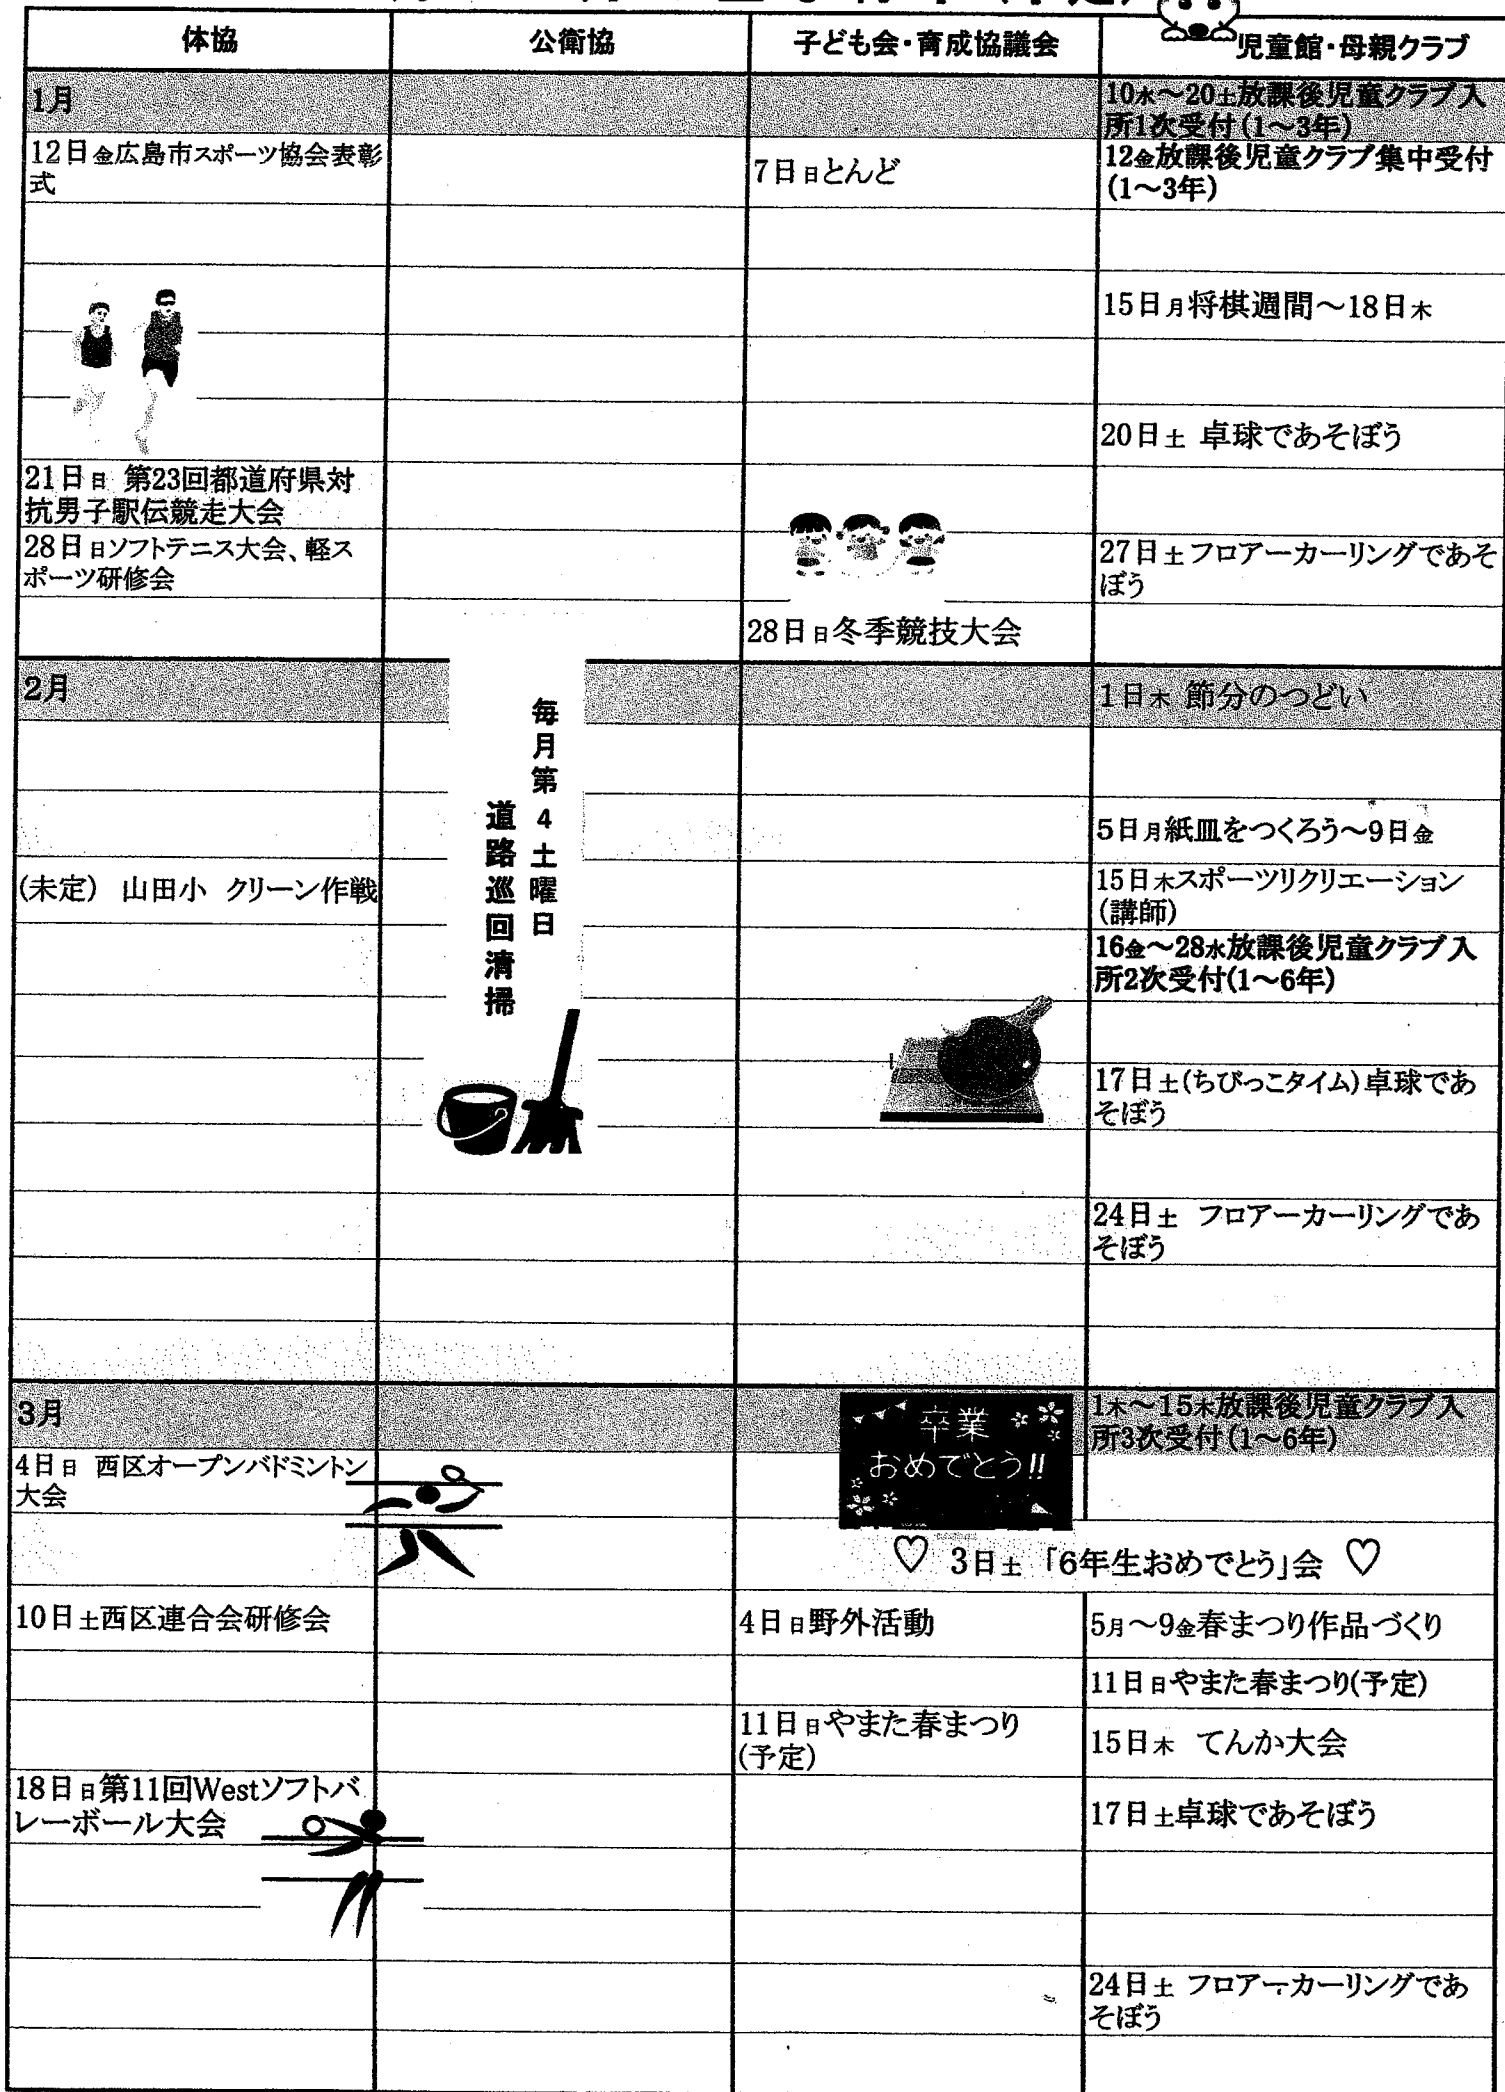 体協
公衛協
子ども会・育成協議会
児童館・母親クラブ
1月
10水～20土放課後児童クラブ入
所1次受付(1～3年)
12日金広島市スポーツ協会表彰
式
7日日とんど
12金放課後児童クラブ集中受付
(1～3年)
15日月将棋週間～18日木
20日土 卓球であそぼう
21日日 第23回都道府県対
抗男子駅伝競走大会
28日日ソフトテニス大会、軽ス
ポーツ研修会
27日土フロアーカーリングであそ
ぼう
28日日冬季競技大会
2月
1日木 節分のつどい
毎月第4土曜日
道路巡回清掃
5日月紙皿をつくろう～9日金
(未定) 山田小 クリーン作戦
15日木スポーツリクリエーション
(講師)
16金～28水放課後児童クラブ入
所2次受付(1～6年)
17日土(ちびっこタイム)卓球であ
そぼう
24日土 フロアーカーリングであ
そぼう
3月
卒業
おめでとう!!
1木～15木放課後児童クラブ入
所3次受付(1～6年)
4日日 西区オープンバドミントン
大会
♡ 3日土 「6年生おめでとう」会 ♡
10日土西区連合会研修会
4日日野外活動
5月～9金春まつり作品づくり
11日日やまた春まつり(予定)
11日日やまた春まつり
(予定)
15日木 てんか大会
18日日第11回Westソフトバ
レーボール大会
17日土卓球であそぼう
24日土 フロアーカーリングであ
そぼう